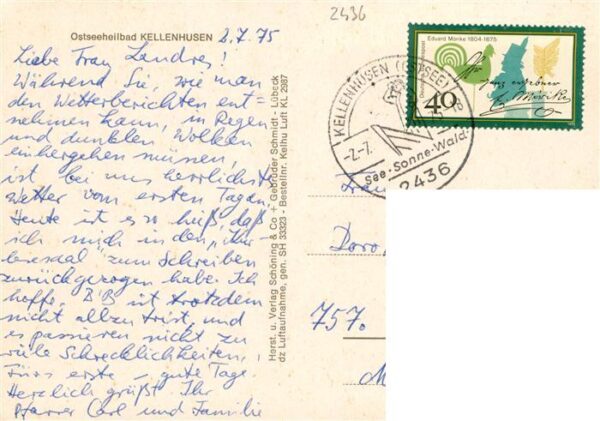 2436
Ostseeheilbad KELLENHUSEN 2.7.75
Liebe Frau Landres!
Während Sie, wie man
den Wetterberichten ent-
nehmen kann, in Regen
und dunklen Wolken
einhergehen müssen,
ist bei uns herrlichstes
Wetter vom ersten Tag an.
Heute ist es so heiß, daß
ich mich in den
zum Schreiben
zurückgezogen habe. Ich
hoffe, ist trotzdem
nicht allzu trist, und
es passieren nicht zu
viele Schrecklichkeiten.
Fürs erste – gute Tage.
Herzlich grüßt Ihr
Pfarrer Carl und Familie
Horst. u. Verlag Schöning & Co + Gebrüder Schmidt - Lübeck
dz Luftaufnahme, gen. SH 33323 - Bestellnr. Kelhu Luft KL 2987
Eduard Mörike 1804-1875
Deutsche Bundespost
40
KELLENHUSEN (OSTSEE)
-2.-7.
See·Sonne·Wald
2436
Doro
757.